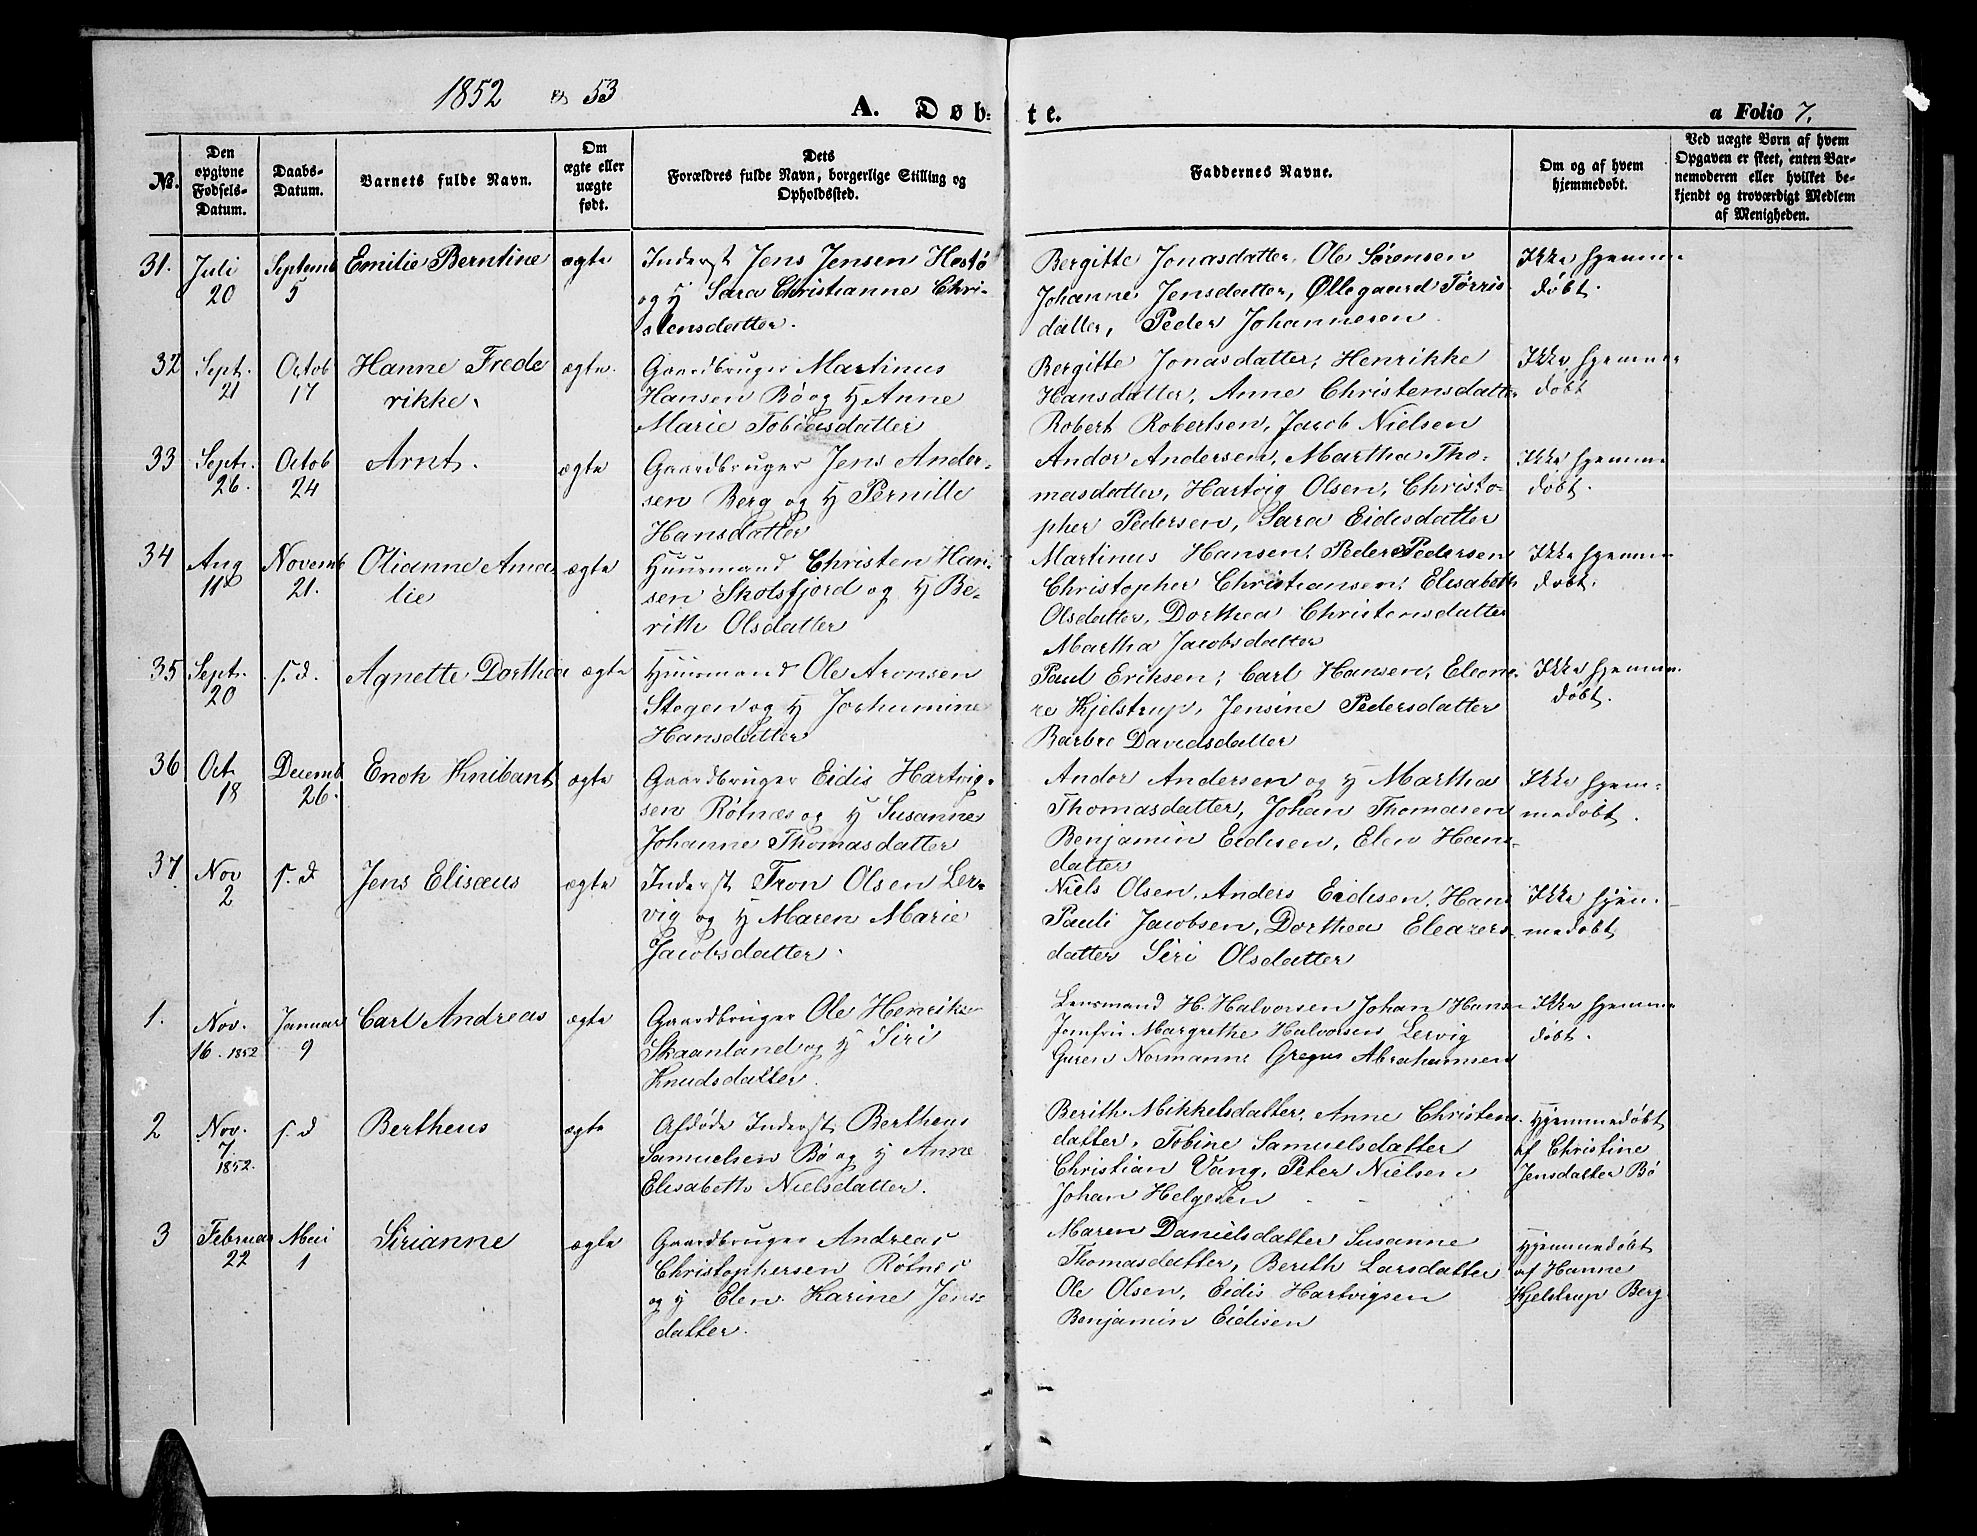 1852 & 53
A. Døb=
te.
a Folio 7.
No.
Den opgivne Fødsels-Datum.
Daabs-Datum.
Barnets fulde Navn.
Om ægte eller uægte født.
Dets Forældres fulde Navn, borgerlige Stilling og Opholdssted.
Faddernes Navne.
Om og af hvem hjemmedøbt.
Ved uægte Børn af hvem Opgaven er skeet, enten Barnemoderen eller hvilket bekjendt og troværdigt Medlem af Menigheden.
31. Juli 20 Septemb 5 Emilie Berntine ægte
Inderst Jens Jensen Hestø
og H Sara Christianne Chri-
stensdatter.
Bergitte Jonasdatter, Ole Sørensen
Johanne Jensdatter, Øllegaard Tørris-
datter, Peder Johannesen
Ikke hjemme-
døbt.
32 Sept. 21 Octob 17 Hanne Frede
rikke. ægte.
Gaardbruger Martinus
Hansen Bø og H Anne
Marie Tobiasdatter
Bergitte Jonasdatter, Henrikke
Hansdatter, Anne Christensdatter
Robert Robertsen, Jacob Nielsen
Ikke hjemme-
døbt
33 Sept. 26. Octob 24 Arnt. ægte
Gaardbruger Jens Ander-
sen Berg og H Pernille
Hansdatter
Andor Andersen, Martha Tho-
masdatter, Hartvig Olsen, Christo-
pher Pedersen, Sara Eidisdatter
Ikke hjemme-
døbt.
34 Aug 11 Novemb 21. Olianne Ama-
lie ægte
Huusmand Christen Han-
sen Skotsfjord og H Be-
rith Olsdatter
Martinus Hansen, Peder Pedersen
Christopher Christiansen, Elisabeth
Olsdatter, Dorthea Christensdatter
Martha Jacobsdatter
Ikke hjemme-
døbt.
35 Sept. 20 s. d. Agnette Dorthea ægte
Huusmand Ole Aronsen
Stegen og H Jochumine
Hansdatter
Paul Eriksen, Carl Hansen, Eleono-
re Kjelstrup, Jensine Pedersdatter
Barbro Davidsdatter
Ikke hjemme-
døbt.
36 Oct 18 Decemb 26. Enok Knibant ægte
Gaardbruger Eidis Hartvig-
sen Røtnæs og H Susanne
Johanne Thomasdatter
Andor Andersen og H Martha
Thomasdatter, Johan Thomasen
Benjamin Eidisen, Elen Hans-
datter
Ikke hjem-
medøbt.
37 Nov 2 s. d Jens Elisæus ægte
Inderst Tron Olsen Ler-
vig og H Maren Marie
Jacobsdatter.
Niels Olsen, Anders Eidisen, Hans
Pauli Jacobsen, Dorthea Eleazers-
datter Siri Olsdatter
Ikke hjem-
medøbt
1. Nov. 16. 1852 Januar 9 Carl Andreas ægte
Gaardbruger Ole Henrik
Skaanland og H Siri
Knudsdatter.
Lensmand H. Halvorsen Johan Hans-
Jomfru Margrethe Halvorsen Lervig
Guren Normanns Gregus Abrahamsen
Ikke hjemme
døbt.
2 Nov. 7 1852. s. d Bertheus ægte
Afdøde Inderst Bertheus
Samuelsen Bø og H Anne
Elisabeth Nielsdatter.
Berith Mikkelsdatter, Anne Christens-
datter, Tobine Samuelsdatter
Christian Vang, Peter Nielsen
Johan Helgesen
Hjemmedøbt
af Christine
Jensdatter Bø
3 Februar 22 Mai 1 Sirianne ægte
Gaardbruger Andreas
Christophersen Røtnes
og H Elen Karine Jens-
datter.
Maren Danielsdatter Susanne
Thomasdatter, Berith Larsdatter
Ole Olsen, Eidis Hartvigsen
Benjamin Eidisen
Hjemmedøbt
af Hanne
Kjelstrup Berg